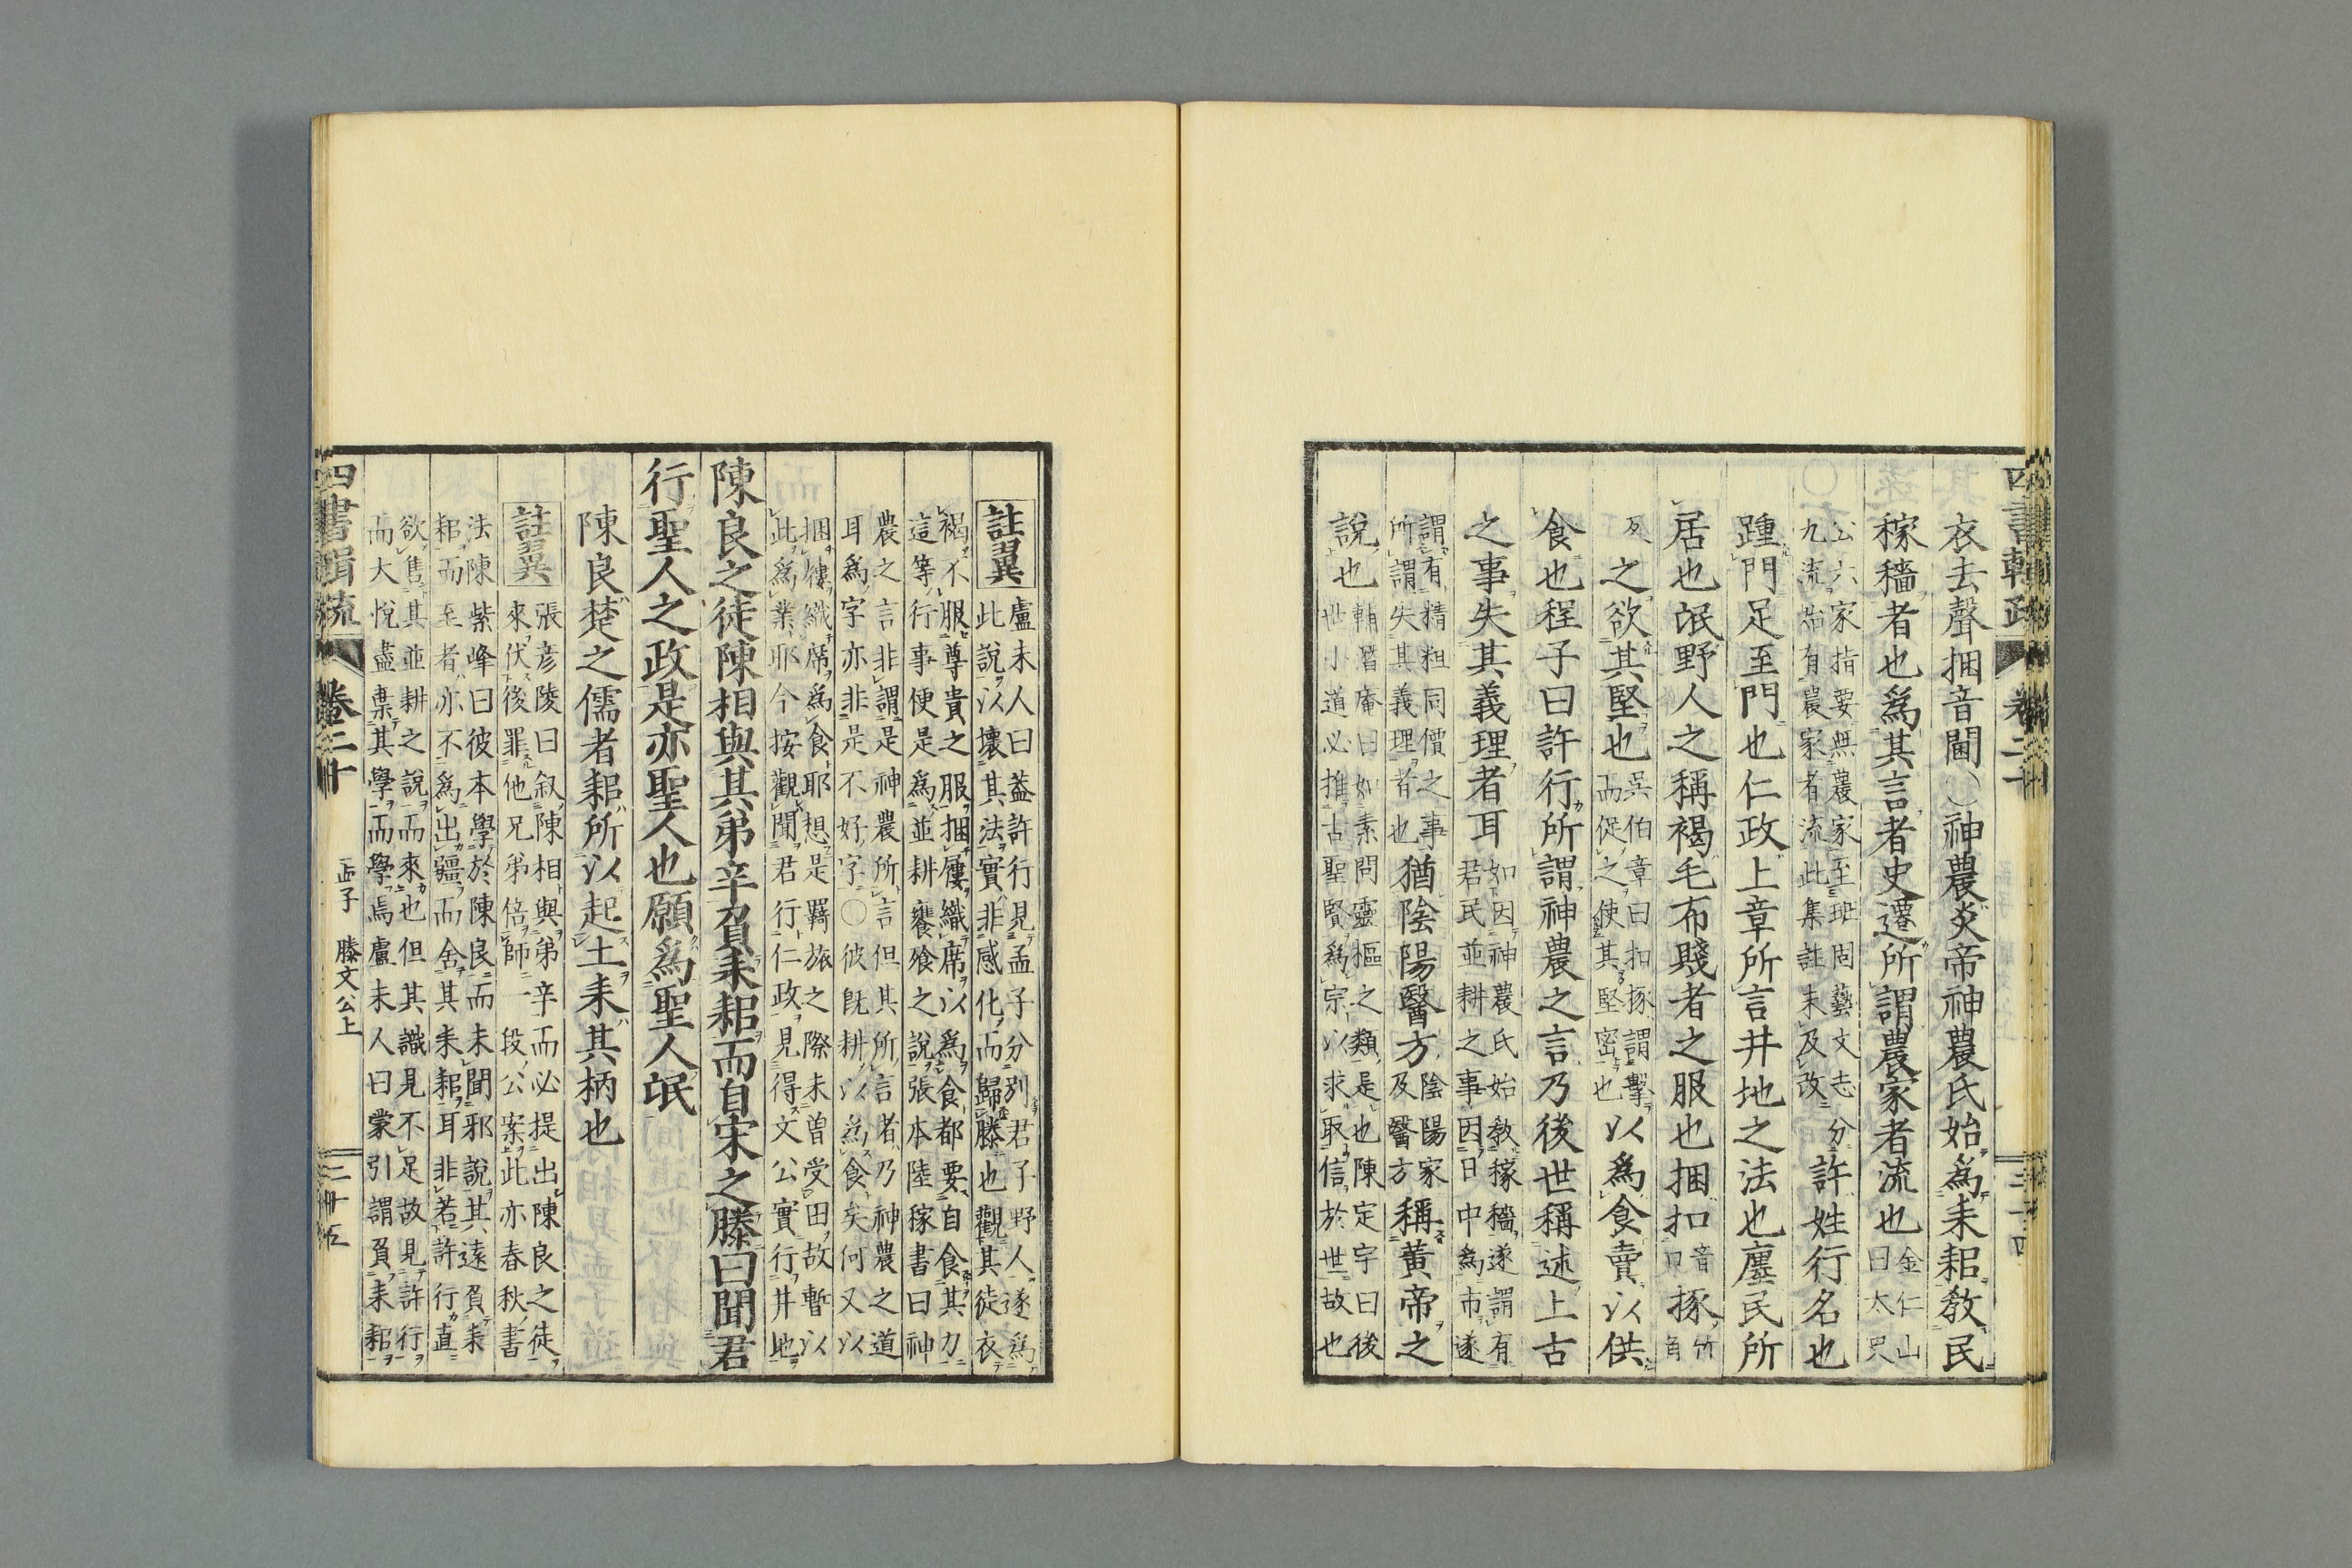 衣去聲捆音閫〇神農炎帝神農氏始爲耒耜敎民
稼穡者也爲其言者史遷所謂農家者流也金仁山曰太史
公六家指要無農家至班固藝文志分九流始有農家者流此集註未及改許姓行名也
踵門足至門也仁政上章所言井地之法也廛民所
居也氓野人之稱褐毛布賤者之服也捆扣音口㧻竹角
反之欲其堅也吳伯章曰扣㧻謂擊而促之使其堅密也以爲食賣以供
食也程子曰許行所謂神農之言乃後世稱述上古
之事失其義理者耳如因神農氏始敎稼穡遂謂有君民並耕之事因日中爲市遂
謂有精粗同價之事所謂失其義理者也猶陰陽醫方陰陽家及醫方稱黃帝之
說也輔潛庵曰如素問靈樞之類是也陳定宇曰後世小道必推古聖賢爲宗以求取信於世故也
四書輯疏 卷二十 三十四
註翼 盧未人曰蓋許行見孟子分別君子野人遂爲
此說以壞其法實非感化而歸滕也觀其徒衣
褐不服尊貴之服捆屨織席以爲食都要自食其力
這等行事便是爲並耕饔飧之說張本陸稼書曰神
農之言非謂是神農所言但其所言者乃神農之道
耳爲字亦非是不好字〇彼旣耕以爲食矣何又以
捆屨織席爲食耶想是羇旅之際未曾受田故暫以
此爲業耶今按觀聞君行仁政見得文公實行井地
陳良之徒陳相與其弟辛負耒耜而自宋之滕曰聞君
行聖人之政是亦聖人也願爲聖人氓
陳良楚之儒者耜所以起土耒其柄也
註翼 張彦陵曰叙陳相與弟辛而必提出陳良之徒
來伏後罪他兄弟倍師一段公案此亦春秋書
法陳紫峰曰彼本學於陳良而未聞邪說其遠負耒
耜而至者亦不爲出疆而舍其耒耜耳非若許行直
欲售其並耕之說而來也但其識見不足故見許行
而大悅盡棄其學而學焉盧未人曰蒙引謂負耒耜
四書輯疏 卷二十 孟子 滕文公上 三十五